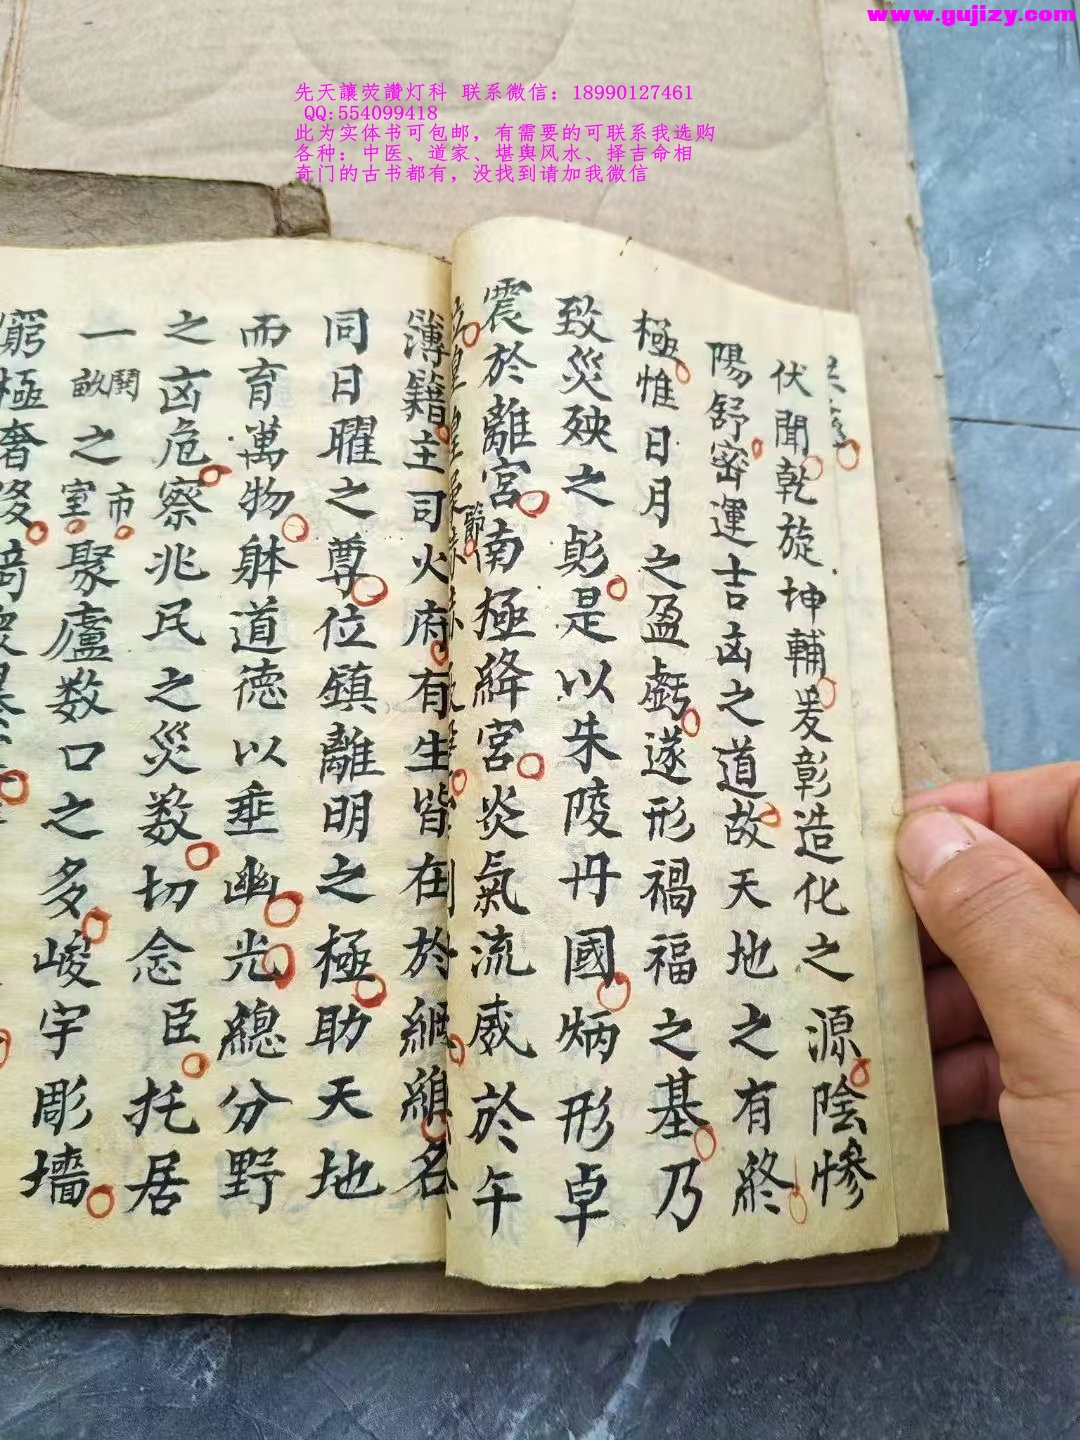 www.gujizy.com
先天讓荧讚灯科 联系微信：18990127461
QQ:554099418
此为实体书可包邮，有需要的可联系我选购
各种：中医、道家、堪舆风水、择吉命相
奇门的古书都有，没找到请加我微信
伏聞乾旋坤輔爰彰造化之源陰慘
陽舒密運吉凶之道故天地之有終
極惟日月之盈虧遂形禍福之基乃
致災殃之髟是以朱陵丹國炳形卓
震於離宮南極絳宮炎氣流威於午
節
簿籍主司火府有生皆在於綱維名
同日曜之尊位鎮離明之極助天地
而育萬物躰道德以垂幽光總分野
之凶危察兆民之災数切念臣托居
一鬪畝之市室聚廬数口之多峻宇彫墻
窮極奢